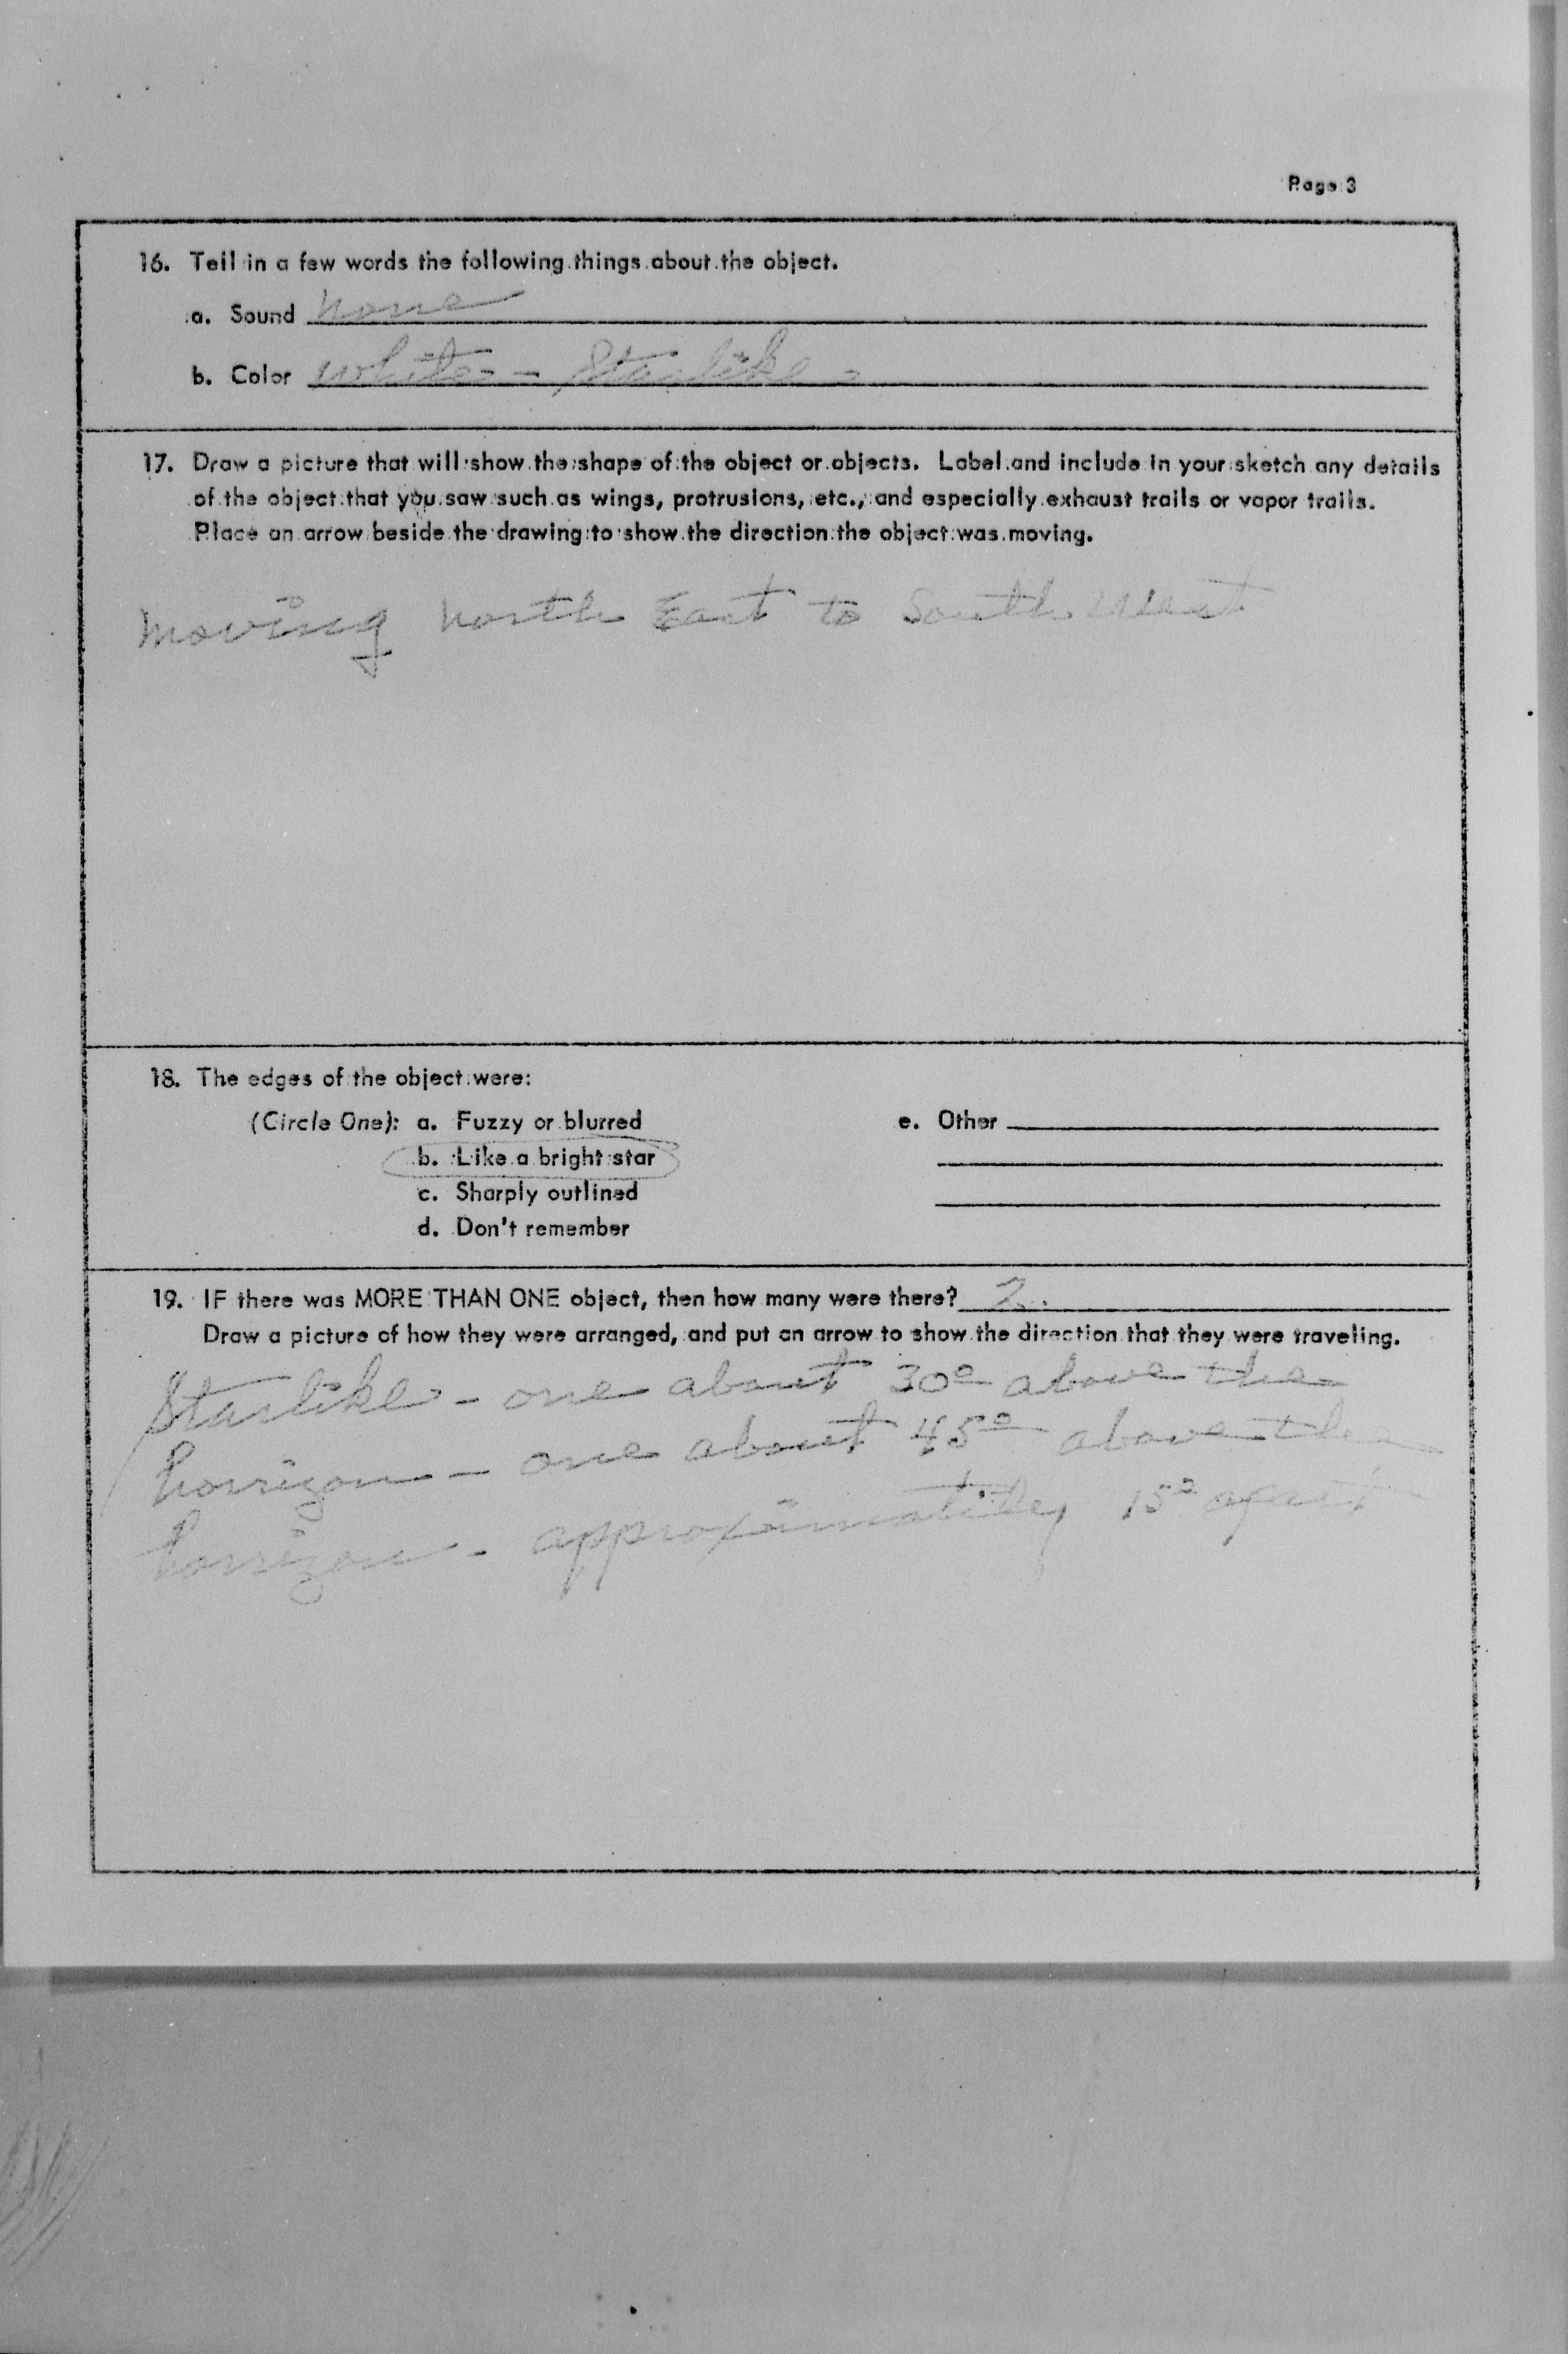 Page 3
16. Tell in a few words the following things about the object.
a. Sound none
b. Color white - Starlike -
17. Draw a picture that will show the shape of the object or objects. Label and include in your sketch any details
of the object that you saw such as wings, protrusions, etc., and especially exhaust trails or vapor trails.
Place an arrow beside the drawing to show the direction the object was moving.
moving north East to South West
18. The edges of the object were:
(Circle One): a. Fuzzy or blurred e. Other
b. Like a bright star
c. Sharply outlined
d. Don't remember
19. IF there was MORE THAN ONE object, then how many were there? 2.
Draw a picture of how they were arranged, and put an arrow to show the direction that they were traveling.
Starlike - one about 30° above the
horrizon - one about 45° above the
horrizon - approximatily 15° apart